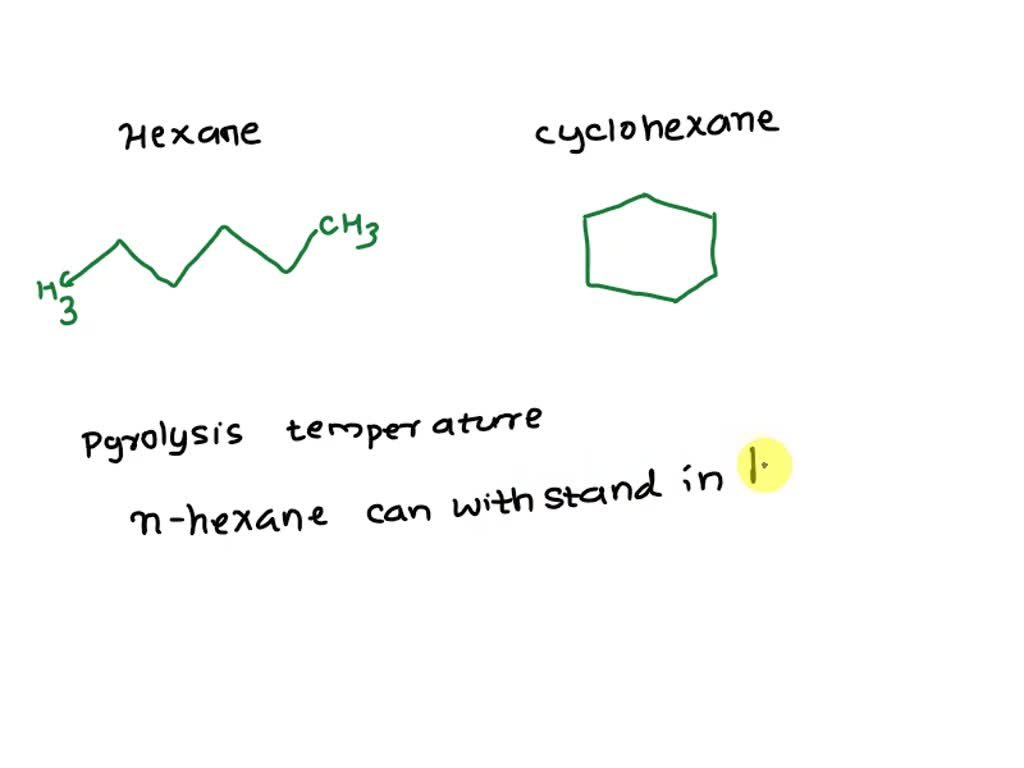 Hexane
cyclohexane
CH3
H3C
Pyrolysis temperature
n-hexane can withstand in